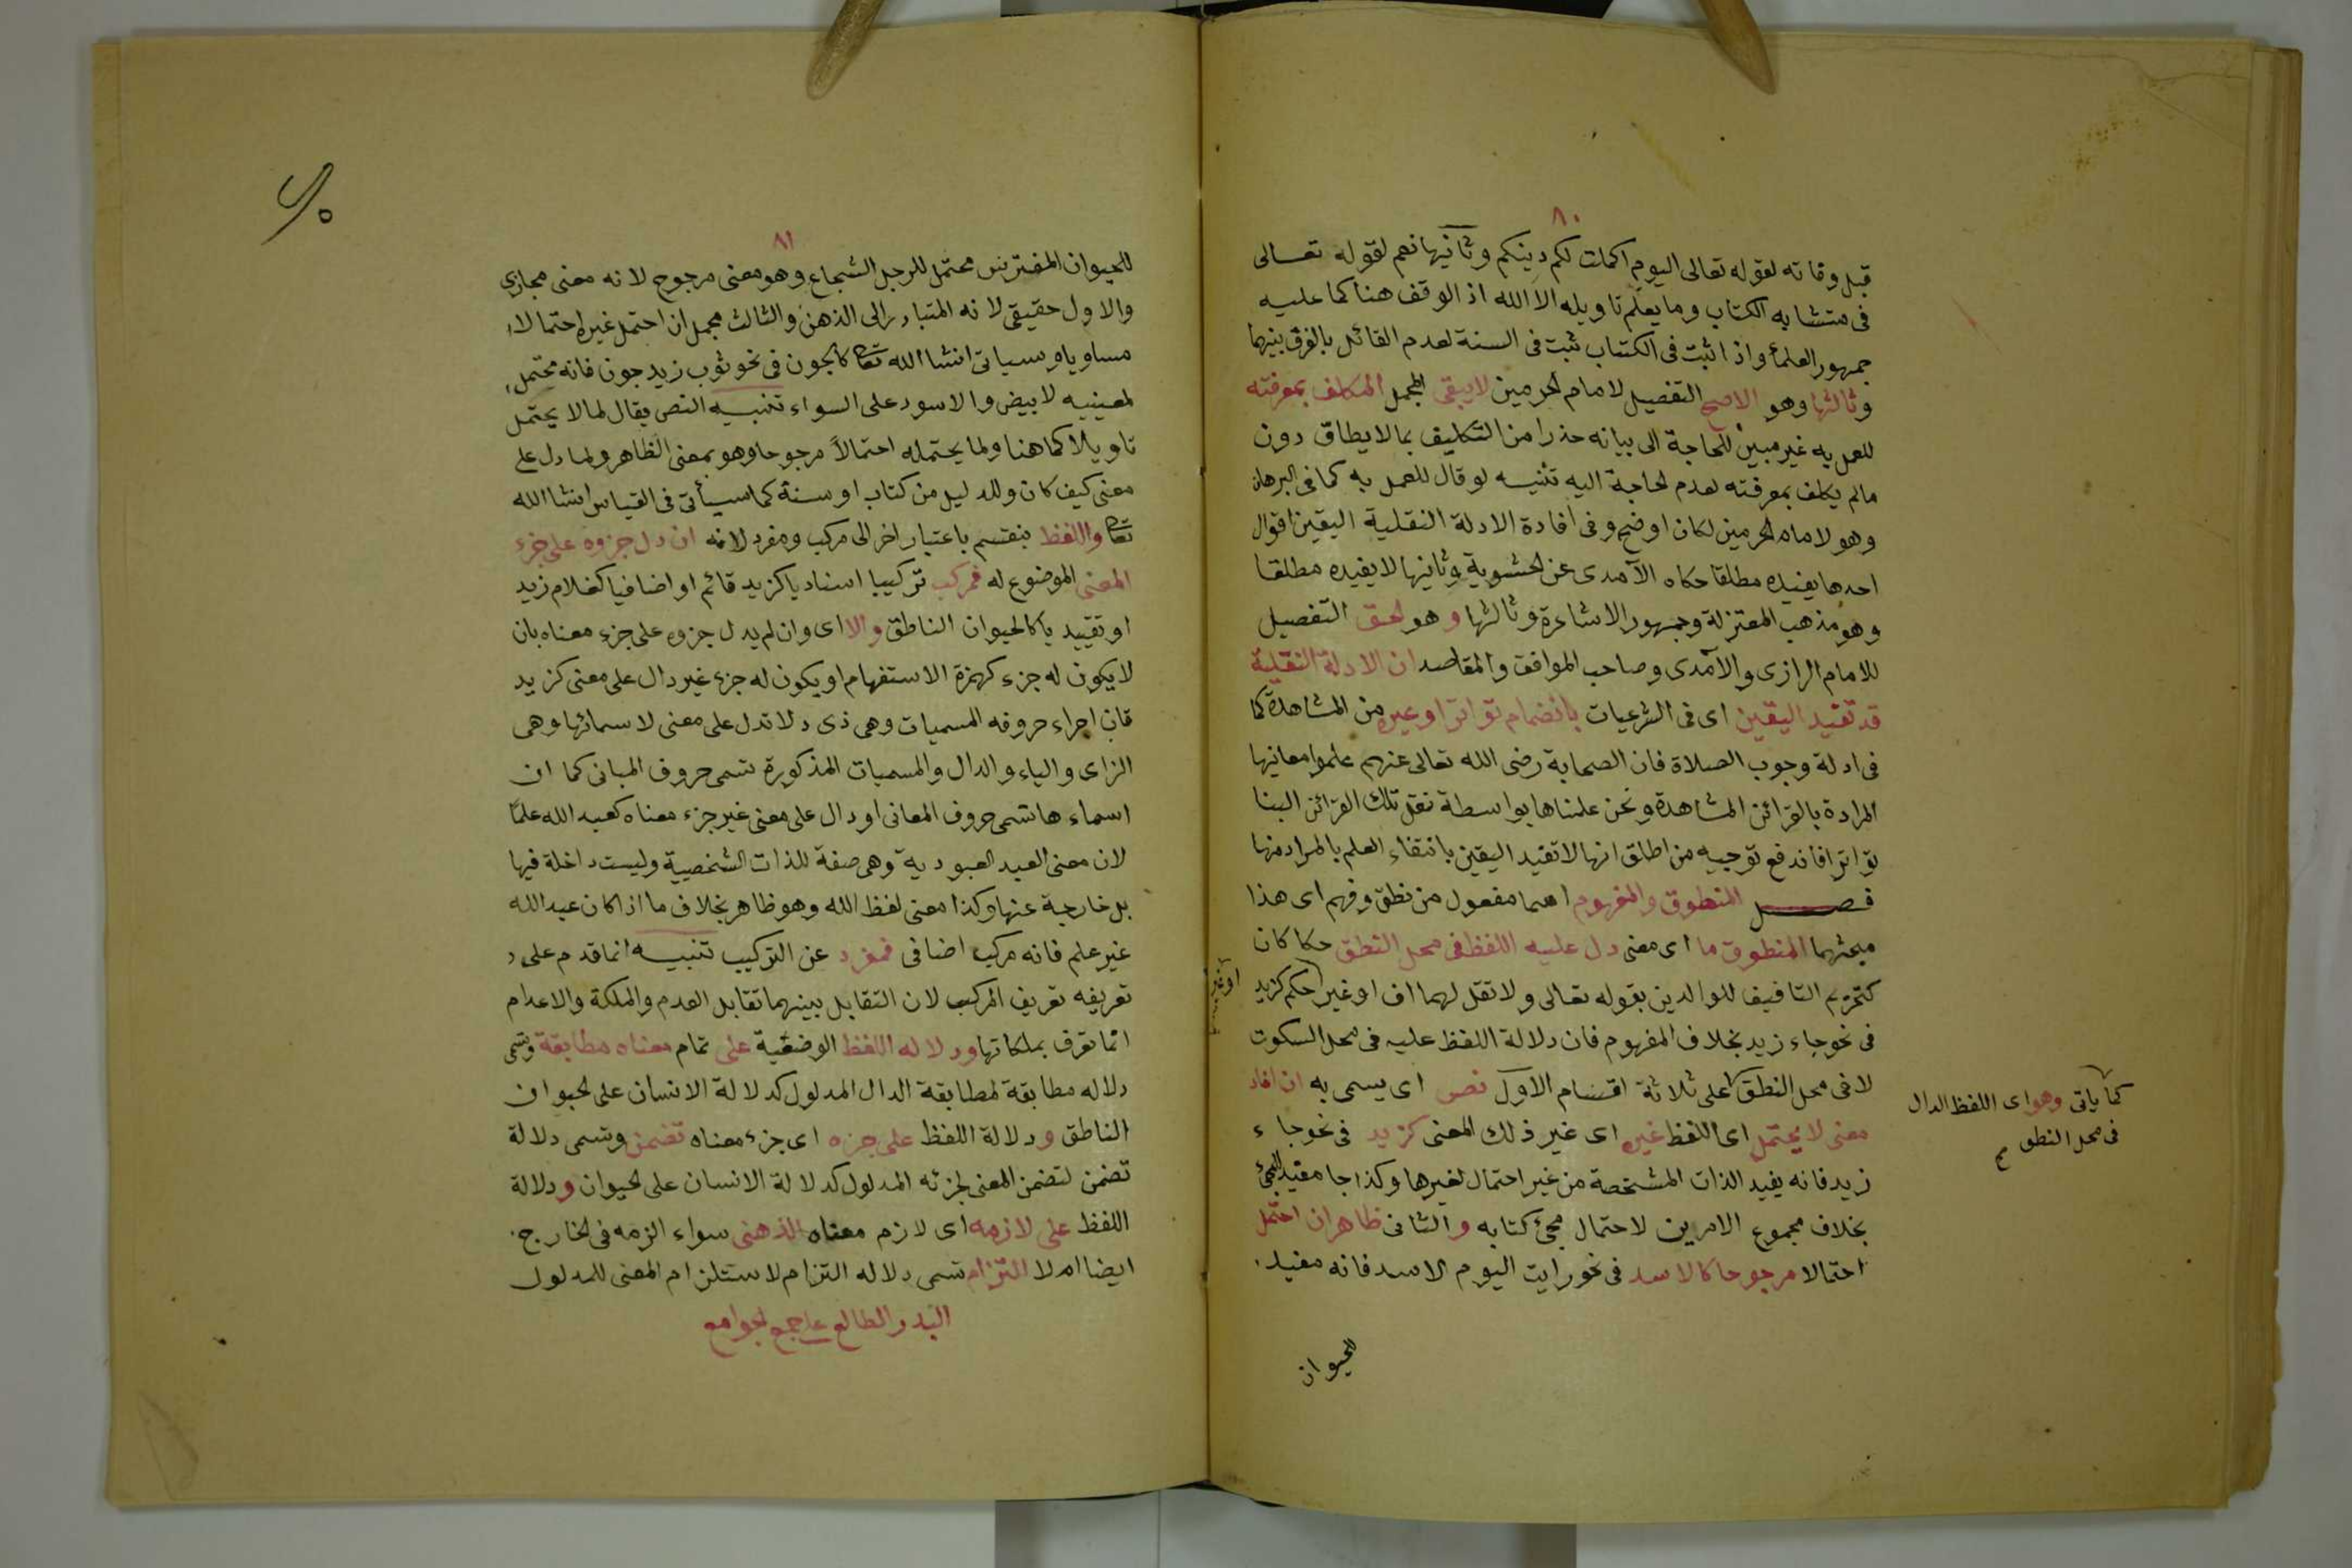 ٨٠
قبل وفاته لقوله تعالى اليوم اكملت لكم دينكم وثانيها نعم لقوله تعالى
فى متشابه الكتاب وما يعلم تاويله الا الله اذ الوقف هنا كما عليه
جمهور العلمأ واذا ثبت فى الكتاب ثبت فى السنة لعدم القائل بالفرق بينهما
وثالثها وهو الاصح التفصيل لامام الحرمين لا يبقى المجمل المكلف بمعرفته
للعمل به غير مبين للحاجة الى بيانه حذرا من التكليف بما لا يطاق دون
مالم يكلف بمعرفته لعدم الحاجة اليه تنبيه لو قال للعمل به كما فى البرهان
وهو لامام الحرمين لكان اوضح وفى افادة الادلة النقلية اليقين اقوال
احدها يفيده مطلقا حكاه الآمدى عن الحشوية وثانيها لا يفيده مطلقا
وهو مذهب المعتزلة وجمهور الاشاعرة وثالثها وهو الحق التفصيل
للامام الرازى والآمدى وصاحب المواقف والمقاصد ان الادلة النقلية
قد تفيد اليقين اى فى الشرعيات بانضمام تواتر او غيره من المشاهدة كما
فى ادلة وجوب الصلاة فان الصحابة رضى الله تعالى عنهم علموا معانيها
المرادة بالقرائن المشاهدة ونحن علمناها بواسطة نقل تلك القرائن الينا
تواترا فاندفع توجيه من اطلق انها لا تفيد اليقين بانتفاء العلم بالمراد منها
فصل المنطوق والمفهوم اسما مفعول من نطق وفهم اى هذا
مبحثهما المنطوق ما اى معنى دل عليه اللفظ فى محل النطق حكما كان
كتحريم التافيف للوالدين بقوله تعالى ولا تقل لهما اف او غير حكم كزيد
فى نحو جاء زيد بخلاف المفهوم فان دلالة اللفظ عليه فى محل السكوت
لا فى محل النطق على ثلاثة اقسام الاول نص اى يسمى به ان افاد
معنى لا يحتمل اى اللفظ غيره اى غير ذلك المعنى كزيد فى نحو جاء
زيد فانه يفيد الذات المشخصة من غير احتمال لغيرها وكذا جا مفيد للمجئ
بخلاف مجموع الامرين لاحتمال مجئ كتابه والثانى ظاهر ان احتمل
احتمالا مرجوحا كالاسد فى نحو رايت اليوم الاسد فانه مفيد
للحيوان
كما ياتى وهو اى اللفظ الدال
فى محل النطق
٨١
للحيوان المفترس محتمل للرجل الشجاع وهو معنى مرجوح لانه معنى مجازى
والاول حقيقى لانه المتبادر الى الذهن والثالث مجمل ان احتمل غيره احتمالا
مساويا وسياتى انشا الله تعا كالجون فى نحو ثوب زيد جون فانه محتمل
لمعنييه لابيض والاسود على السواء تنبيه النص يقال لما لا يحتمل
تاويلا كما هنا ولما يحتمله احتمالاً مرجوحا وهو بمعنى الظاهر ولما دل على
معنى كيف كان وللدليل من كتاب او سنة كما سيأتى فى القياس انشا الله
تعا واللفظ ينقسم باعتبار اخر الى مركب ومفرد لانه ان دل جزوه على جزء
المعنى الموضوع له فمركب تركيبا اسناديا كزيد قائم او اضافيا كغلام زيد
او تقييديا كالحيوان الناطق والا اى وان لم يدل جزوه على جزء معناه بان
لا يكون له جزء كهمزة الاستفهام او يكون له جزء غير دال على معنى كزيد
فان اجزاء حروفه المسميات وهى ذى د لا تدل على معنى لا سمائها وهى
الزاى والياء والدال والمسميات المذكورة تسمى حروف المبانى كما ان
اسماءها تسمى حروف المعانى او دال على معنى غير جزء معناه كعبد الله علمًا
لان معنى العبد العبودية وهى صفة للذات الشخصيية وليست داخلة فيها
بل خارجية عنها وكذا معنى لفظ الله وهو ظاهر بخلاف ما اذا كان عبد الله
غير علم فانه مركب اضافى فمفرد عن التركيب تنبيه انما قدم على
تعريفه تعريف المركب لان التقابل بينهما تقابل العدم والملكة والاعدام
انما تعرف بملكاتها ودلاله اللفظ الوضعية على تمام معناه مطابقة وتسمى
دلاله مطابقة لمطابقة الدال المدلول كدلالة الانسان على الحيوان
الناطق ودلالة اللفظ على جزه اى جزء معناه تضمن وتسمى دلالة
تضمن لتضمن المعنى لجزئه المدلول كدلالة الانسان على الحيوان ودلالة
اللفظ على لازمه اى لازم معناه الذهنى سواء الزمه فى الخارج
ايضا ام لا التزام تسمى دلاله التزام لاستلزام المعنى للمدلول
البدر الطالع على جمع الجوامع